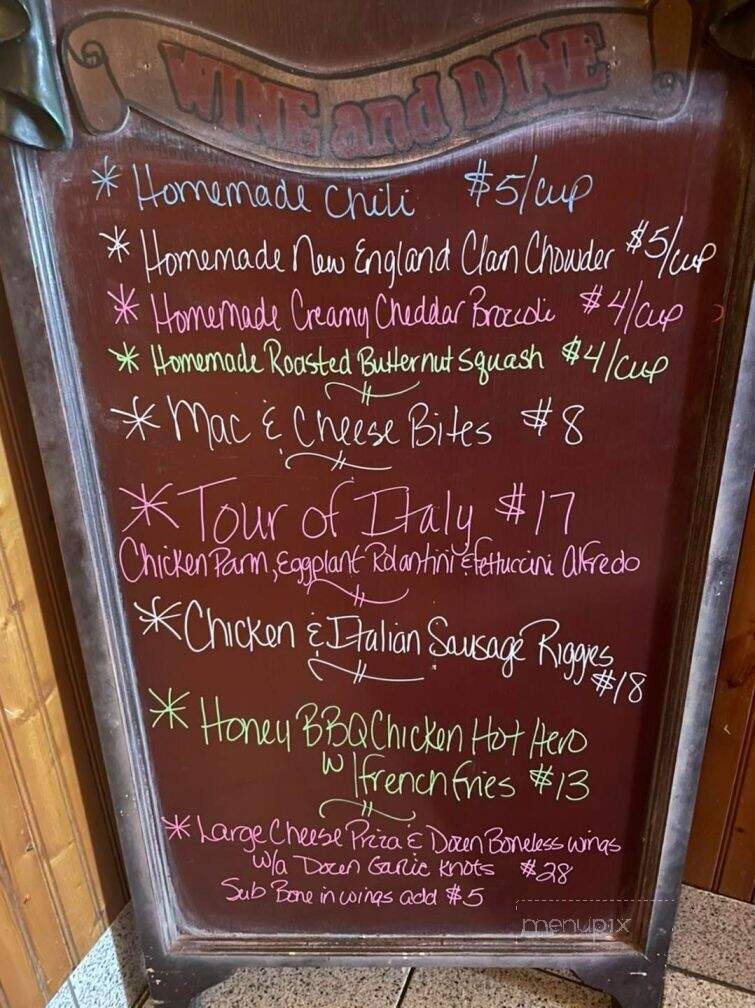 WINE and DINE
* Homemade Chili $5/cup
* Homemade New England Clam Chowder $5/cup
* Homemade Creamy Cheddar Broccoli $4/cup
* Homemade Roasted Butternut Squash $4/cup
* Mac & Cheese Bites $8
* Tour of Italy $17
Chicken Parm, Eggplant Rolantini & Fettuccini Alfredo
* Chicken & Italian Sausage Riggies
$18
* Honey BBQ Chicken Hot Hero
w/ French Fries $13
* Large Cheese Pizza & Dozen Boneless wings
w/a Dozen Garlic Knots $28
Sub Bone in wings add $5
menupix